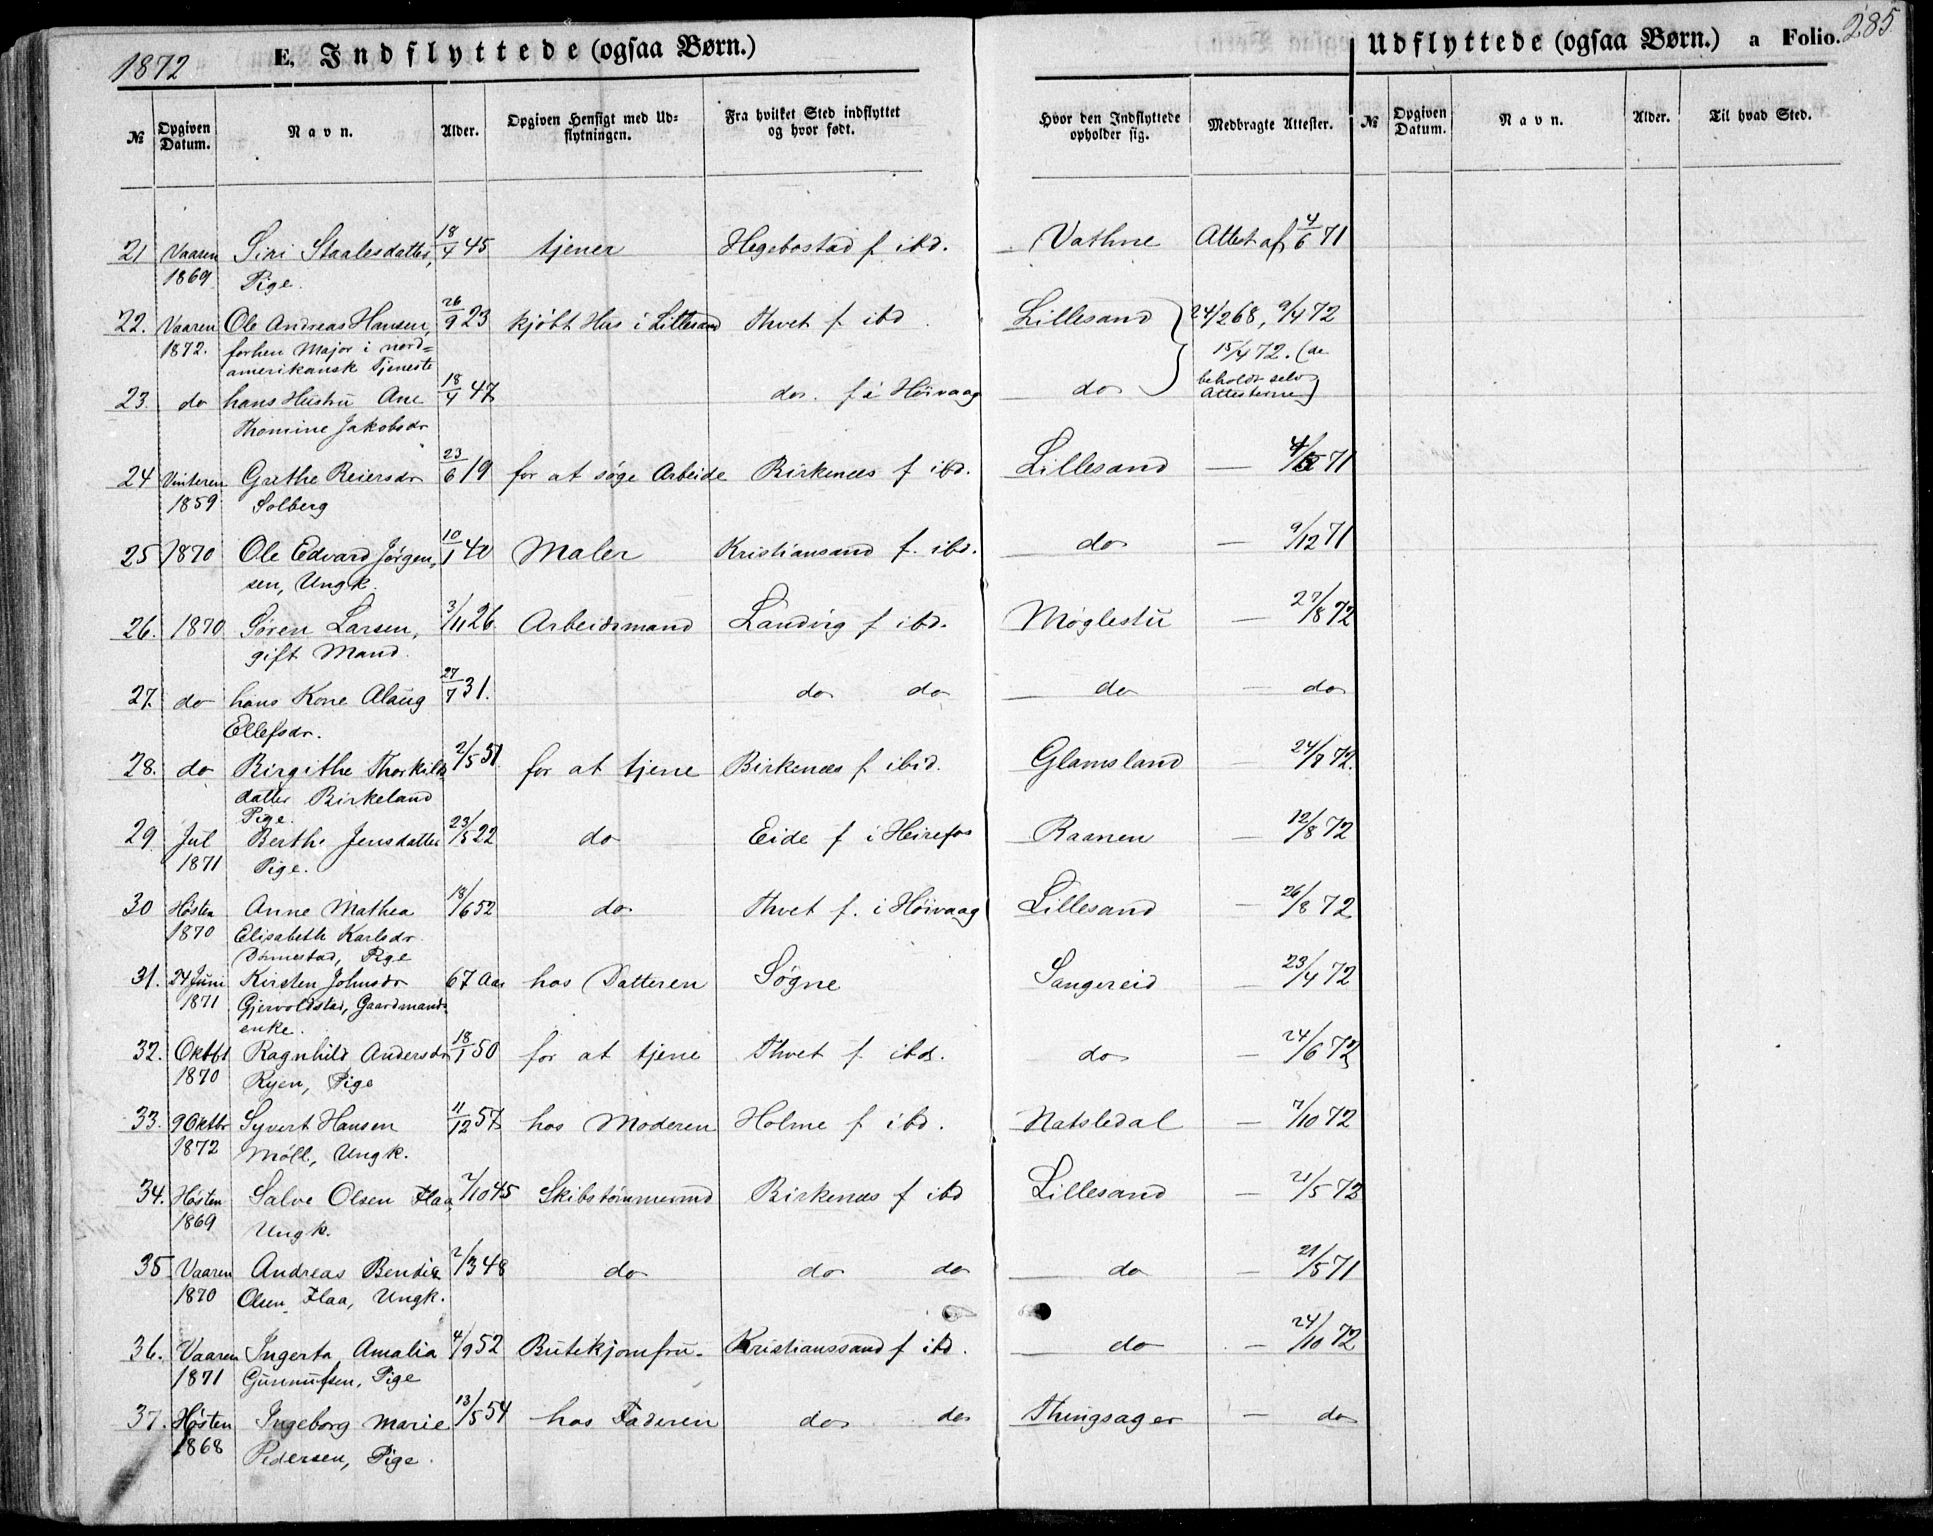 1872 E. Indflyttede (ogsaa Børn.) Udflyttede (ogsaa Børn.) a Folio. 285.
№ Opgiven Datum. Navn. Alder. Opgiven Hensigt med Udflytningen. Fra hvilket Sted indflyttet og hvor født. Hvor den Indflyttede opholder sig. Medbragte Attester. № Opgiven Datum. Navn. Alder. Til hvad Sted.
21 Vaaren Siri Staalesdatter, 18/4 45 tjener Hegebostad f ibd. Vathne Attest af 4/6 71
1869 Pige.
22. Vaaren Ole Andreas Hansen, 26/9 23 kjöbt Hus i Lillesand Thvet f ibd Lillesand 24/2 68, 9/4 72
1872. forhen Major i nord= 15/4 72. (de
amerikansk Tjeneste beholdt selv
23. do hans Hustru Ane 18/4 47 do. f i Höivaag do Attesterne)
Thomine Jakobsdr
24 Vinteren Grethe Reiersdr 23/6 19 for at söge Arbeide Birkenæs f ibd. Lillesand — 71
1859 Solberg
25 1870 Ole Edvard Jörgen, 10/1 40 Maler Kristiansand f. ibd. do — 9/12 71
sen, Ungk.
26. 1870 Sören Larsen, 3/11 26. Arbeidsmand Landvig f ibd. Möglestu — 27/8 72
gift Mand.
27. do hans Kone Alaug 27/7 31. do do do — do
Ellefsdr.
28. do Birgithe Thorkilds 2/5 51 for at tjene Birkenæs f ibid. Glamsland — 72.
datter Birkeland
Pige.
29 Jul Berthe Jensdatter 23/5 22 do Eide f i Heirefos Raanen — 12/8 72
1871 Pige.
30 Hösten Anne Mathea 18/6 52 do Thvet f. i Höivaag Lillesand — 26/8 72
1870 Elisabeth Karlsdr.
Dönnestad, Pige
31. 24 Juni Kirsten Johnsdr 67 Aar hos Datteren Sögne Sangereid — 23/4 72
1871 Gjervoldstad, Gaardmands
enke.
32. Oktbr Ragnhild Andersdr 18/1 50 for at tjene Thvet f ibd. do — 24/6 72
1870 Ryen, Pige
33. 9 Oktbr Syvert Hansen 11/12 57 hos Moderen Holme f ibd. Natsledal — 7/10 72
1872 Möll, Ungk.
34. Hösten Salve Olsen Flaa, 7/10 45 Skibstömmermd Birkenæs f ibd Lillesand — 21/5 72
1869 Ungk.
35 Vaaren Andreas Bendix 2/3 48 do do do do — 21/5 71
1870 Olsen Flaa, Ungk.
36. Vaaren Ingerta Amalia 4/9 52 Butikjomfru. Kristianssand f ibd. do — 24/10 72
1871 Gunnufsen, Pige
37. Hösten Ingeborg Marie 13/5 54 hos Faderen do do Thingsager — do
1868 Pedersen, Pige.